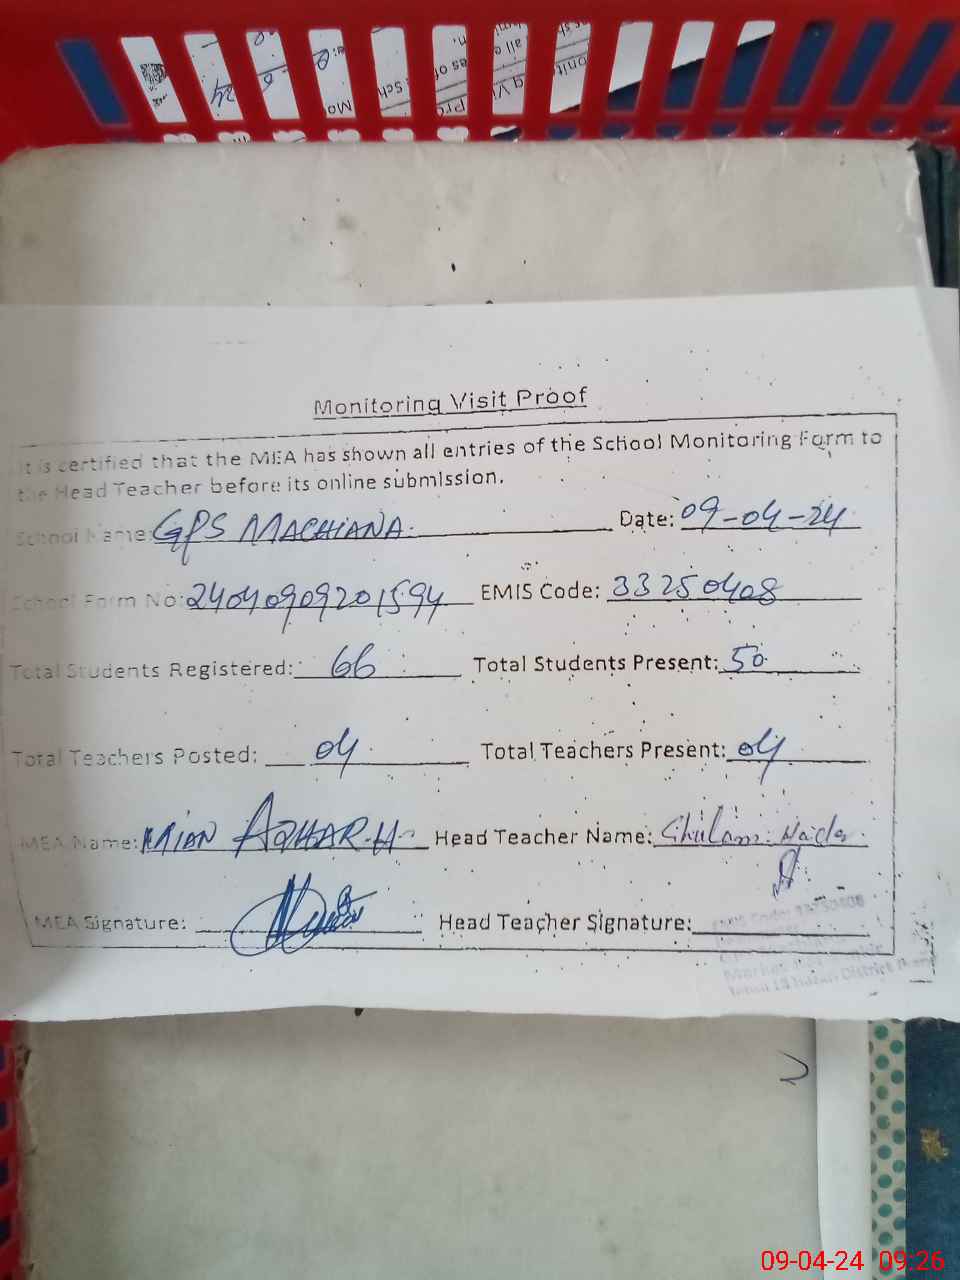 Monitoring Visit Proof
It is certified that the MEA has shown all entries of the School Monitoring Form to
the Head Teacher before its online submission.
School Name: GPS MACHIANA. Date: 09-04-24
School Form No: 24040909201594 EMIS Code: 33250408
Total Students Registered: 66 Total Students Present: 50
Total Teachers Posted: 04 Total Teachers Present: 04
MEA Name: MIAN AZHAR-H Head Teacher Name: Ghulam Haider
MEA Signature: Head Teacher Signature:
EMIS Code: 33250408
09-04-24 09:26